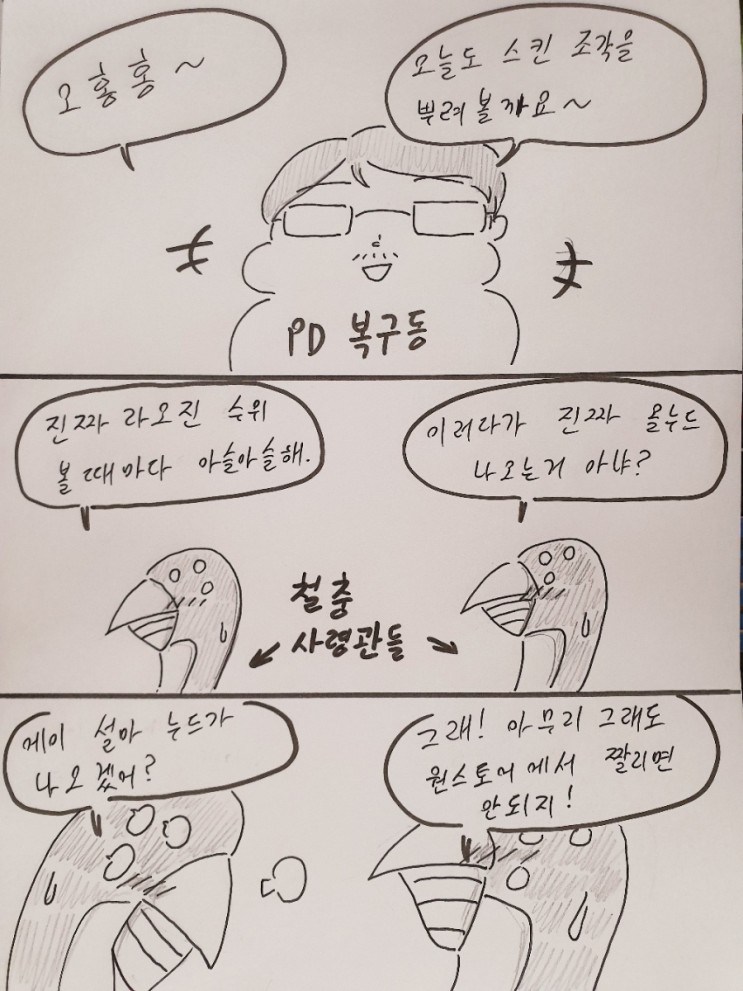 오홍홍~
오늘도 스킨 조각을
뿌려볼까요~
PD 복구동
진짜 라오진 수위
볼때마다 아슬아슬해.
이러다가 진짜 올누드
나오는거 아냐?
철충
사령관들
에이 설마 누드가
나오겠어?
그래! 아무리 그래도
원스토어에서 짤리면
안되지!